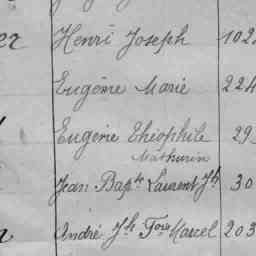 er Henri Joseph 102
Eugène Marie 224
Eugène Théophile 29
Mathurin
Jean Bap^te Laurent J^h 30
André J^h F^ois Marcel 203